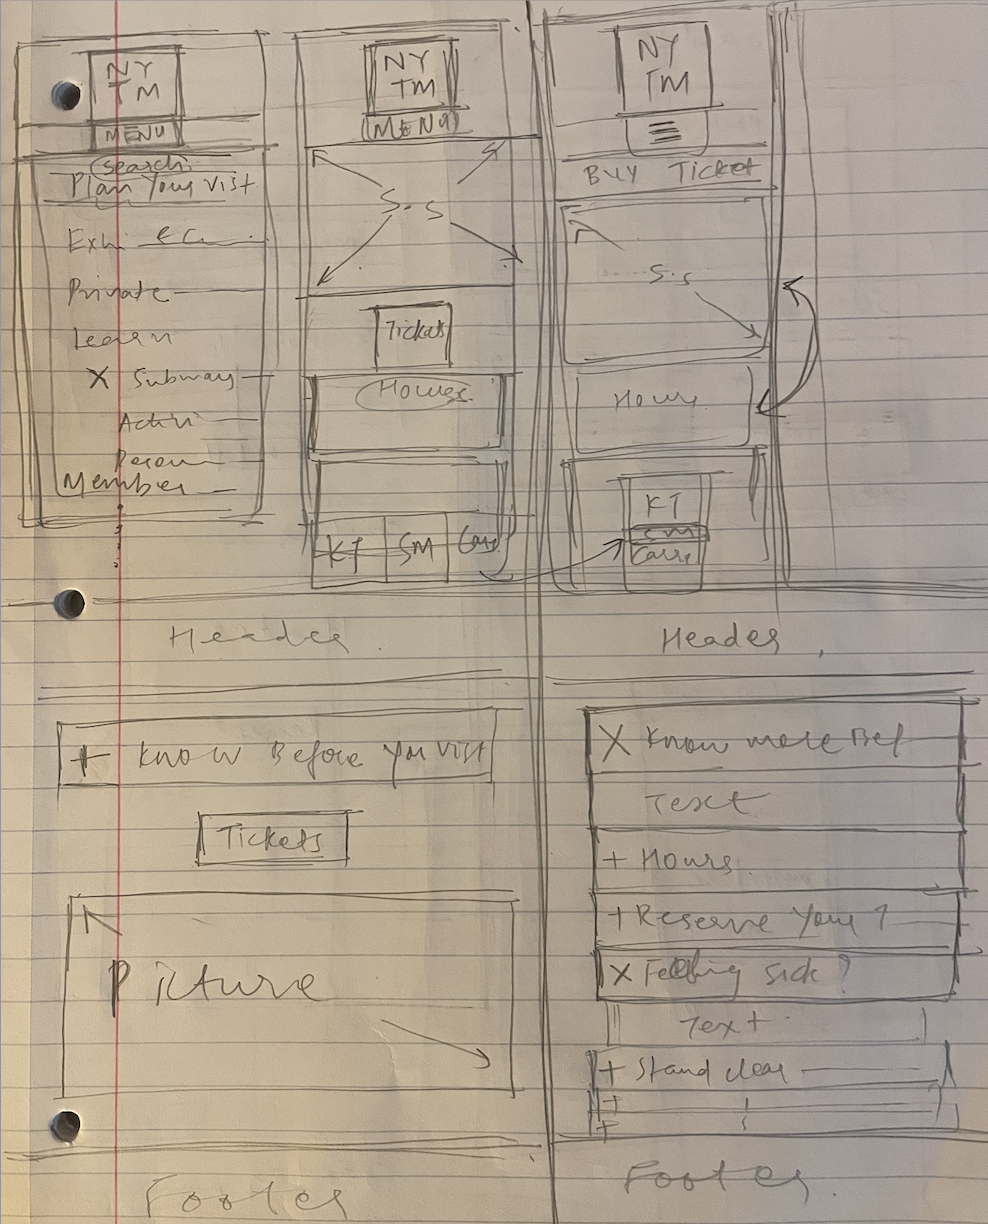 NY
TM
MENU
Search
Plan Your Vist
Private
Learn
X Subway
Member
NY
TM
MENU
S.S
Tickets
Hours
KT SM
NY
TM
BUY Ticket
S.S
Hours
KT
SM
Header
+ Know Before You Vist
Tickets
Picture
Footer
Header
X Know more Bef
Text
+ Hours
+ Reserve Your T
X Feeling Sick?
Text
+ Stand clear
+
+
Footer